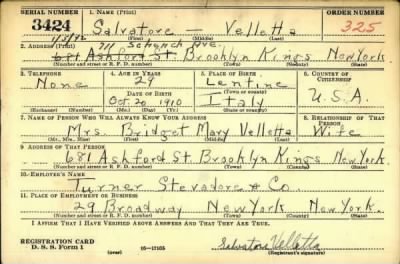 SERIAL NUMBER 1. NAME (Print) ORDER NUMBER
3424 Salvatore — Velletta 325
(First) (Middle) (Last)
711 Schenck Ave.
2. ADDRESS (Print)
681 Ashford St. Brooklyn Kings New York
(Number and street or R. F. D. number) (Town) (County) (State)
3. TELEPHONE 4. AGE IN YEARS 5. PLACE OF BIRTH 6. COUNTRY OF CITIZENSHIP
None 29 Lentine U.S.A.
DATE OF BIRTH (Town or county)
Oct. 20 1910 Italy
(Exchange) (Number) (Mo.) (Day) (Yr.) (State or country)
7. NAME OF PERSON WHO WILL ALWAYS KNOW YOUR ADDRESS 8. RELATIONSHIP OF THAT PERSON
Mrs. Bridget Mary Velletta Wife
(Mr., Mrs., Miss) (First) (Middle) (Last)
9. ADDRESS OF THAT PERSON
681 Ashford St. Brooklyn Kings New York.
(Number and street or R. F. D. number) (Town) (County) (State)
10. EMPLOYER'S NAME
Turner Stevadore & Co.
11. PLACE OF EMPLOYMENT OR BUSINESS
29 Broadway New York New York.
(Number and street or R. F. D. number) (Town) (County) (State)
I AFFIRM THAT I HAVE VERIFIED ABOVE ANSWERS AND THAT THEY ARE TRUE.
REGISTRATION CARD
D. S. S. Form 1 (over) 16—17105 Salvatore Velletta
(Registrant's signature)